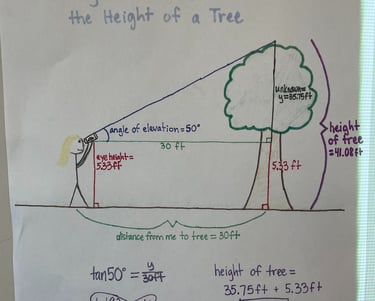 the Height of a Tree
unknown=
y=35.75ft
angle of elevation=50°
30 ft
height
of tree
=41.08ft
eye height=
5.33ft
5.33 ft
distance from me to tree = 30ft
tan50° = y/30ft
height of tree =
35.75ft + 5.33ft